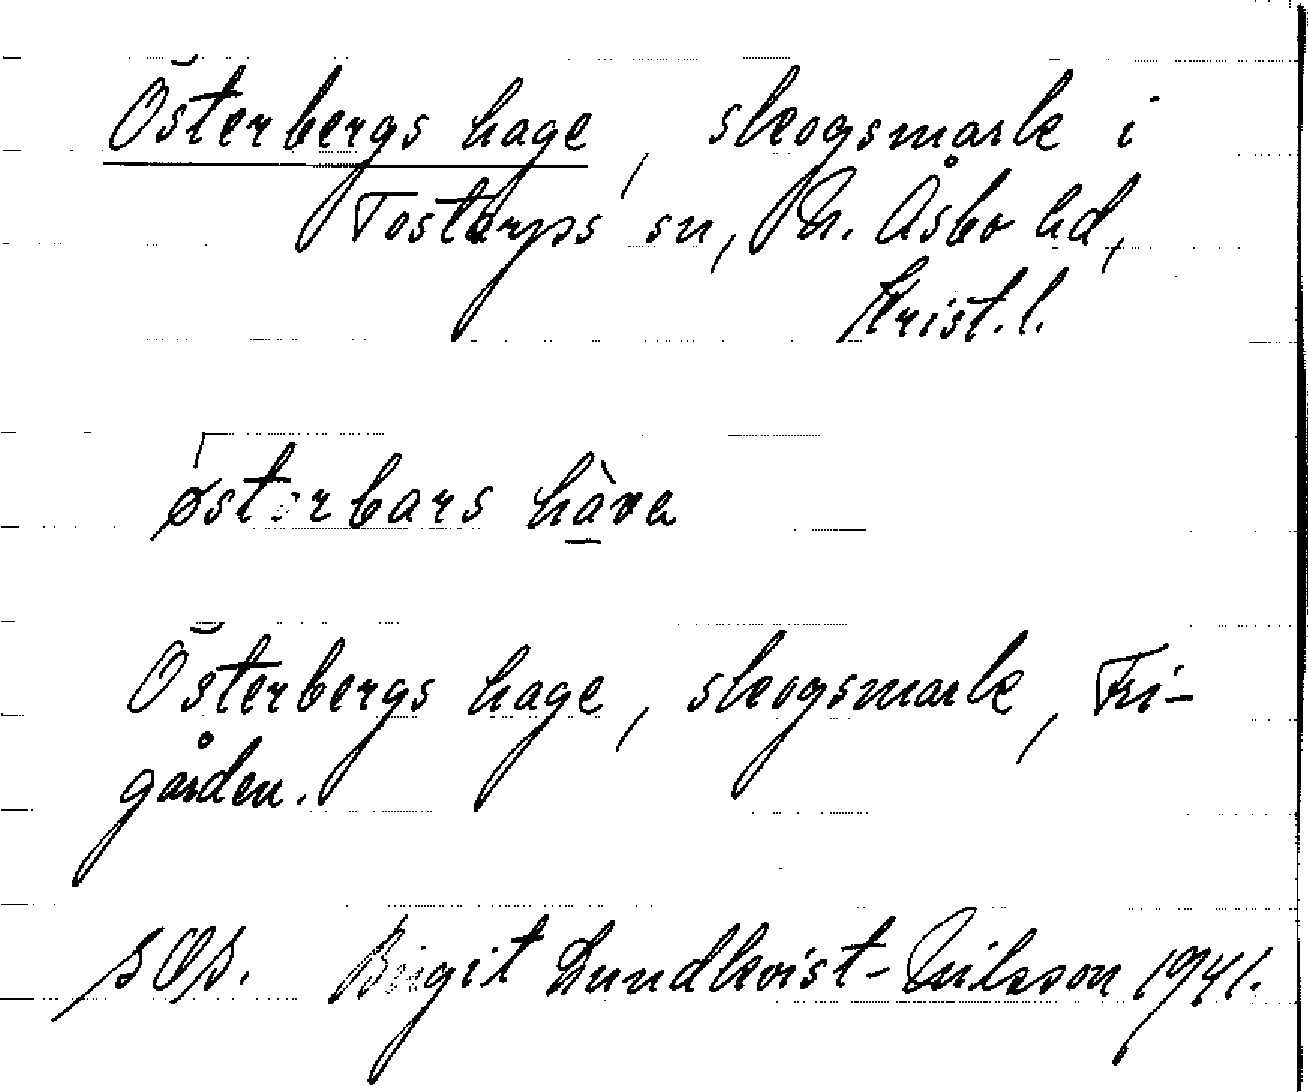 Österbergs hage, skogsmark i
Tostarps sn, N. Åsbo hd,
Krist. l.
østerbars hàva
Österbergs hage, skogsmark, Fri-
gården.
Birgit Lundkvist-Nilsson 1941.